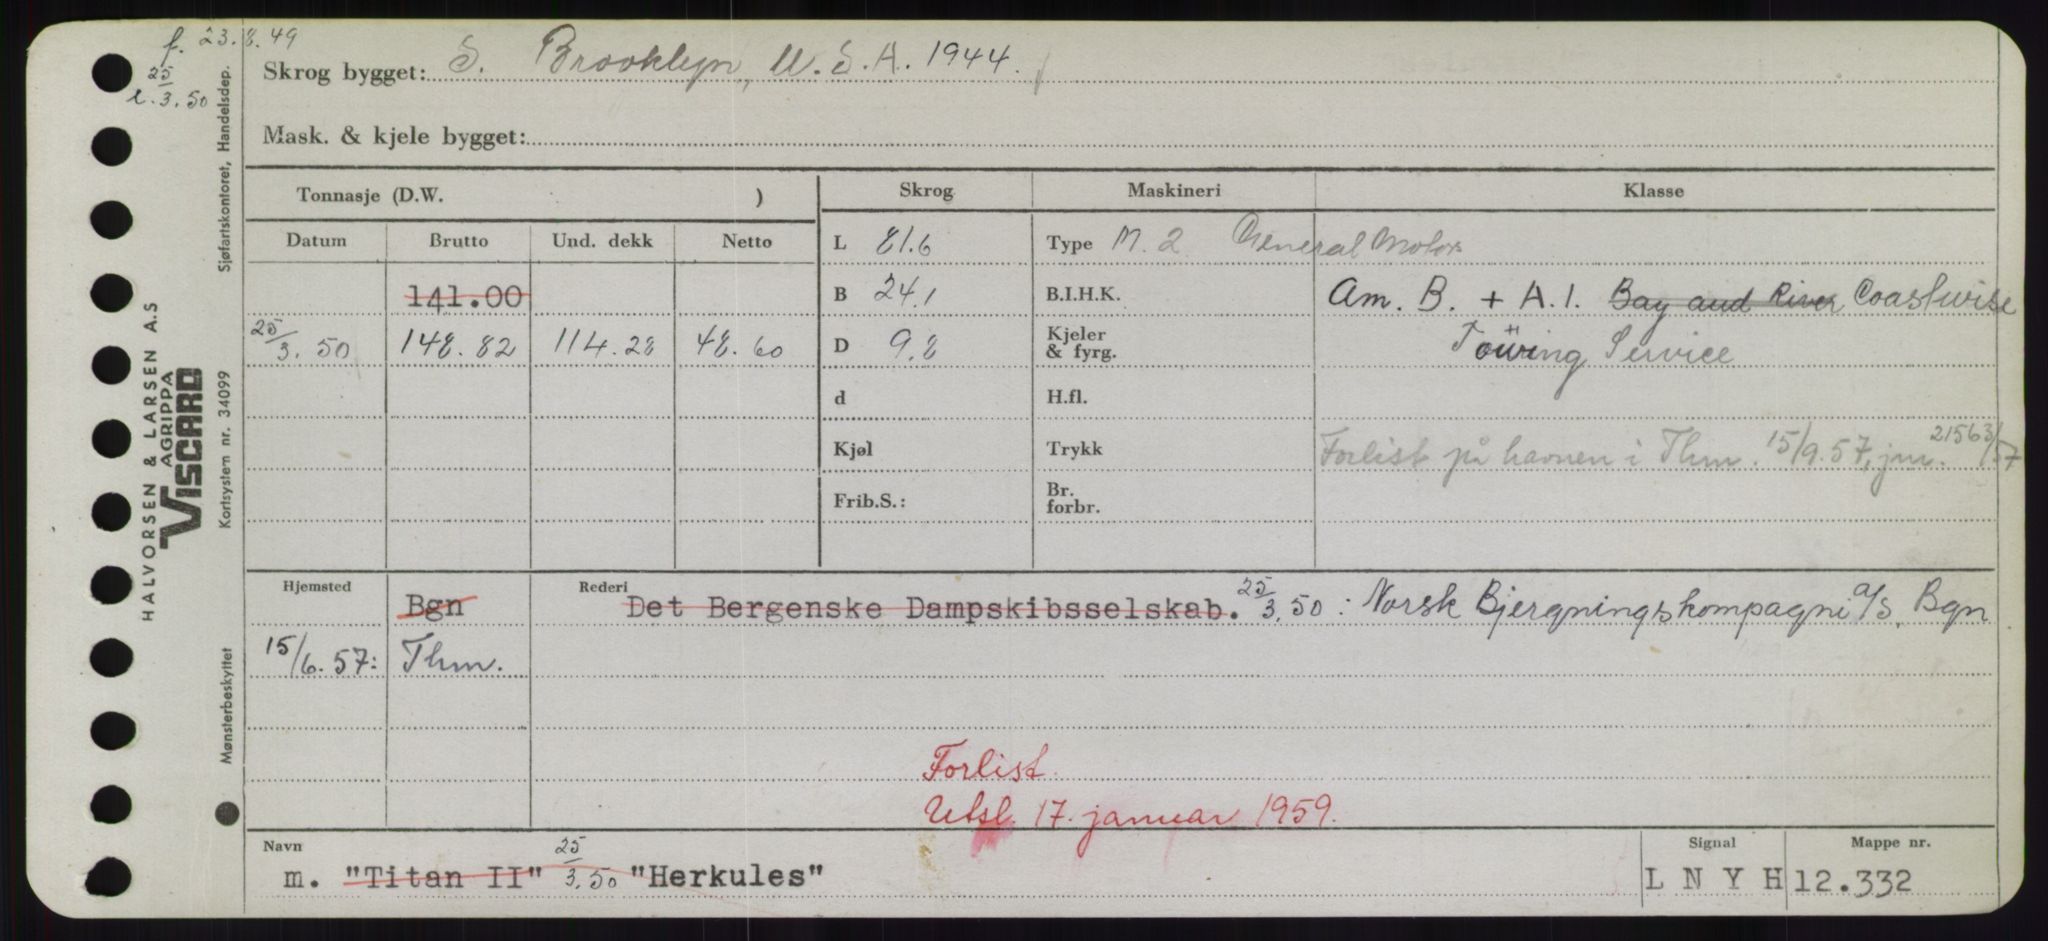 f. 23.8.49
25/3.50
Skrog bygget: S. Brooklyn, U.S.A. 1944.
Mask. & kjele bygget:
Tonnasje (D.W. )
Skrog
Maskineri
Klasse
Datum Brutto Und. dekk Netto
L 81.6
Type M. 2 General Motor
141.00
B 24.1
B.I.H.K.
Am. B. + A.1. Bay and River Coastwise
25/3.50 148.82 114.28 48.60
D 9.8
Kjeler & fyrg.
Towing Service
d
H.fl.
Kjøl
Trykk
Forlist på havnen i Thm. 15/9.57, jnr. 21563/57
Frib.S.:
Br. forbr.
Hjemsted Bgn
Rederi Det Bergenske Dampskibsselskab. 25/3.50: Norsk Bjergningskompagni a/s, Bgn
15/6.57: Thm.
Forlist.
Utsl. 17. januar 1959.
Navn
Signal
Mappe nr.
m. "Titan II" 25/3.50 "Herkules"
L N Y H
12.332
HALVORSEN & LARSEN A.S
AGRIPPA
VISCARD
Sjøfartskontoret, Handelsdep.
Kortsystem nr. 34099
Mønsterbeskyttet